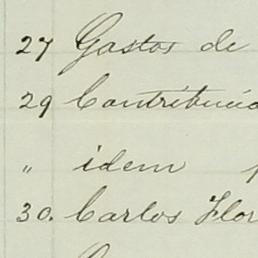 27 Gastos de
29 Contribució
„ idem
30. Carlos Flor